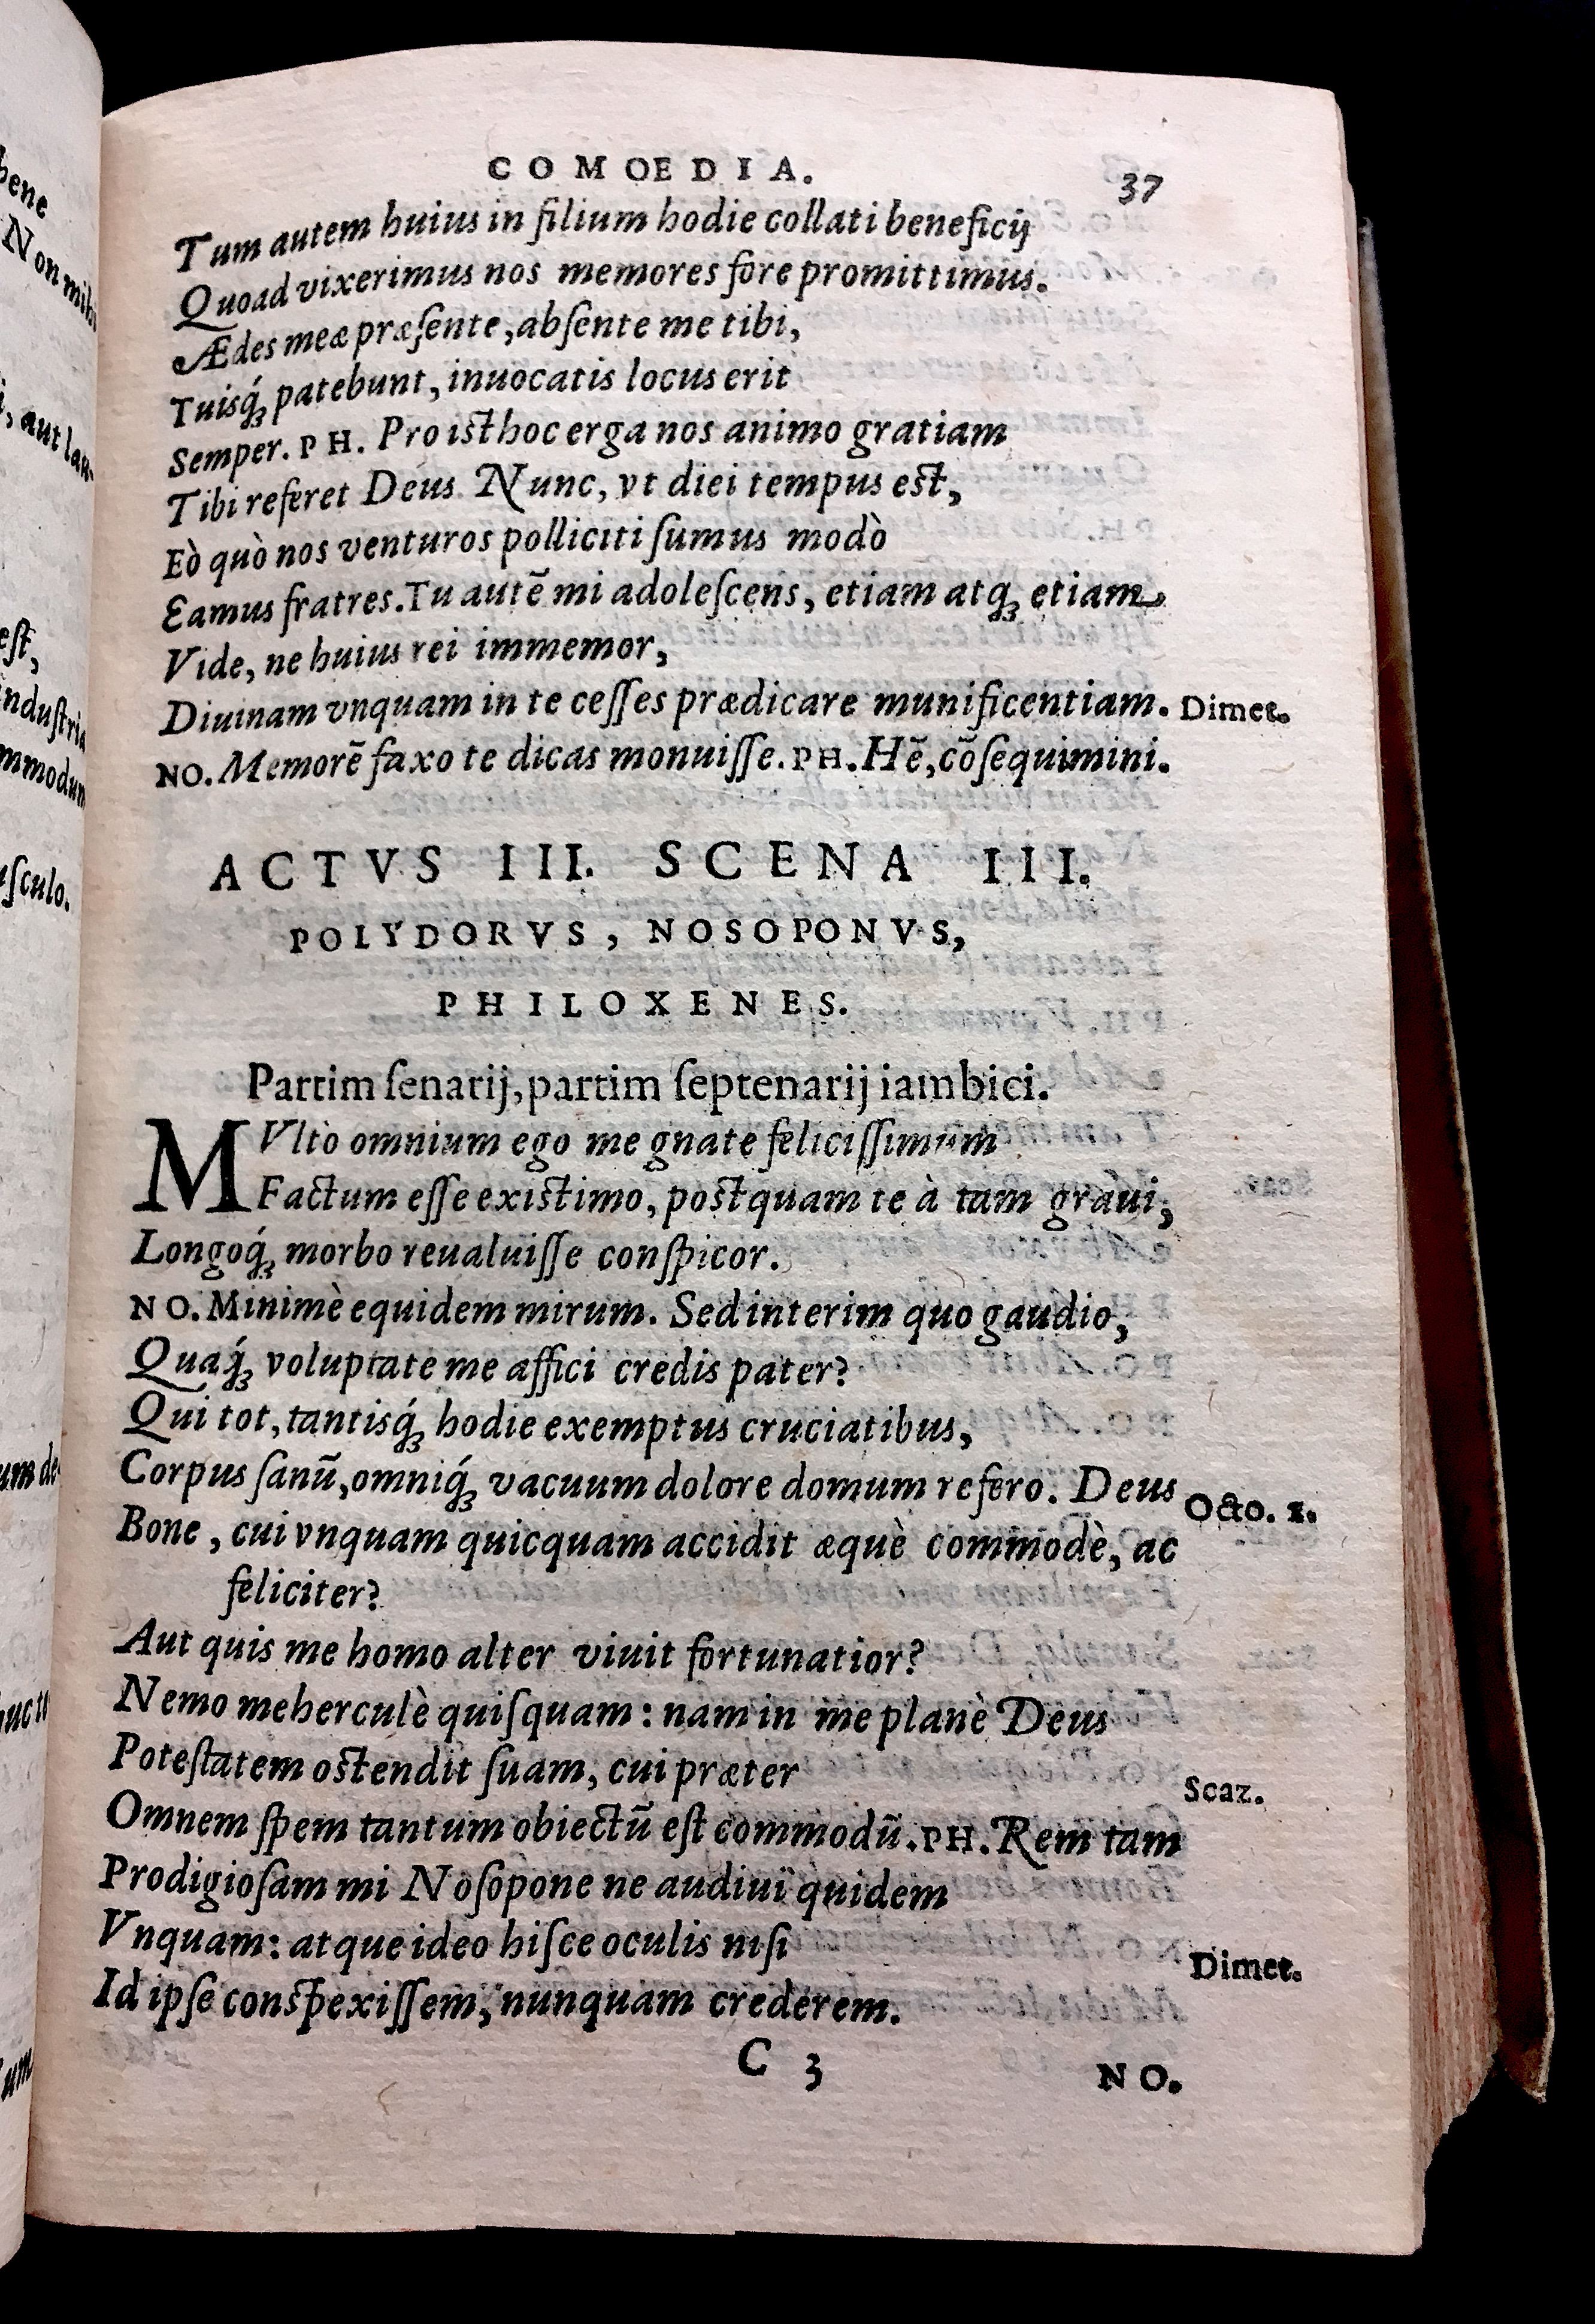 COMOEDIA. 37
Tum autem huius in filium hodie collati beneficij
Quoad vixerimus nos memores fore promittimus.
Ædes meæ præſente, abſente me tibi,
Tuisq́ꝫ patebunt, inuocatis locus erit
Semper. PH. Pro iſthoc erga nos animo gratiam
Tibi referet Deus. Nunc, vt diei tempus eſt,
Eò quò nos venturos polliciti ſumus modò
Eamus fratres. Tu autẽ mi adoleſcens, etiam atqꝫ etiam
Vide, ne huius rei immemor,
Diuinam vnquam in te ceſſes prædicare munificentiam. Dimet.
NO. Memorẽ faxo te dicas monuiſſe. PH. Hẽ, cõſequimini.
ACTVS III. SCENA III.
POLYDORVS, NOSOPONVS,
PHILOXENES.
Partim ſenarij, partim ſeptenarij iambici.
MVlto omnium ego me gnate feliciſſimum
Factum eſſe exiſtimo, poſtquam te à tam graui,
Longoq́ꝫ morbo reualuiſſe conſpicor.
NO. Minimè equidem mirum. Sed interim quo gaudio,
Quaq́ꝫ voluptate me affici credis pater?
Qui tot, tantisq́ꝫ hodie exemptus cruciatibus,
Corpus ſanũ, omniq́ꝫ vacuum dolore domum refero. Deus Octo. 2.
Bone, cui vnquam quicquam accidit æquè commodè, ac
feliciter?
Aut quis me homo alter viuit fortunatior?
Nemo meherculè quiſquam: nam in me planè Deus
Poteſtatem oſtendit ſuam, cui præter Scaz.
Omnem ſpem tantum obiectũ eſt commodũ. PH. Rem tam
Prodigioſam mi Noſopone ne audiui quidem
Vnquam: atque ideo hiſce oculis niſi Dimet.
Id ipſe conſpexiſſem, nunquam crederem.
C 3 NO.